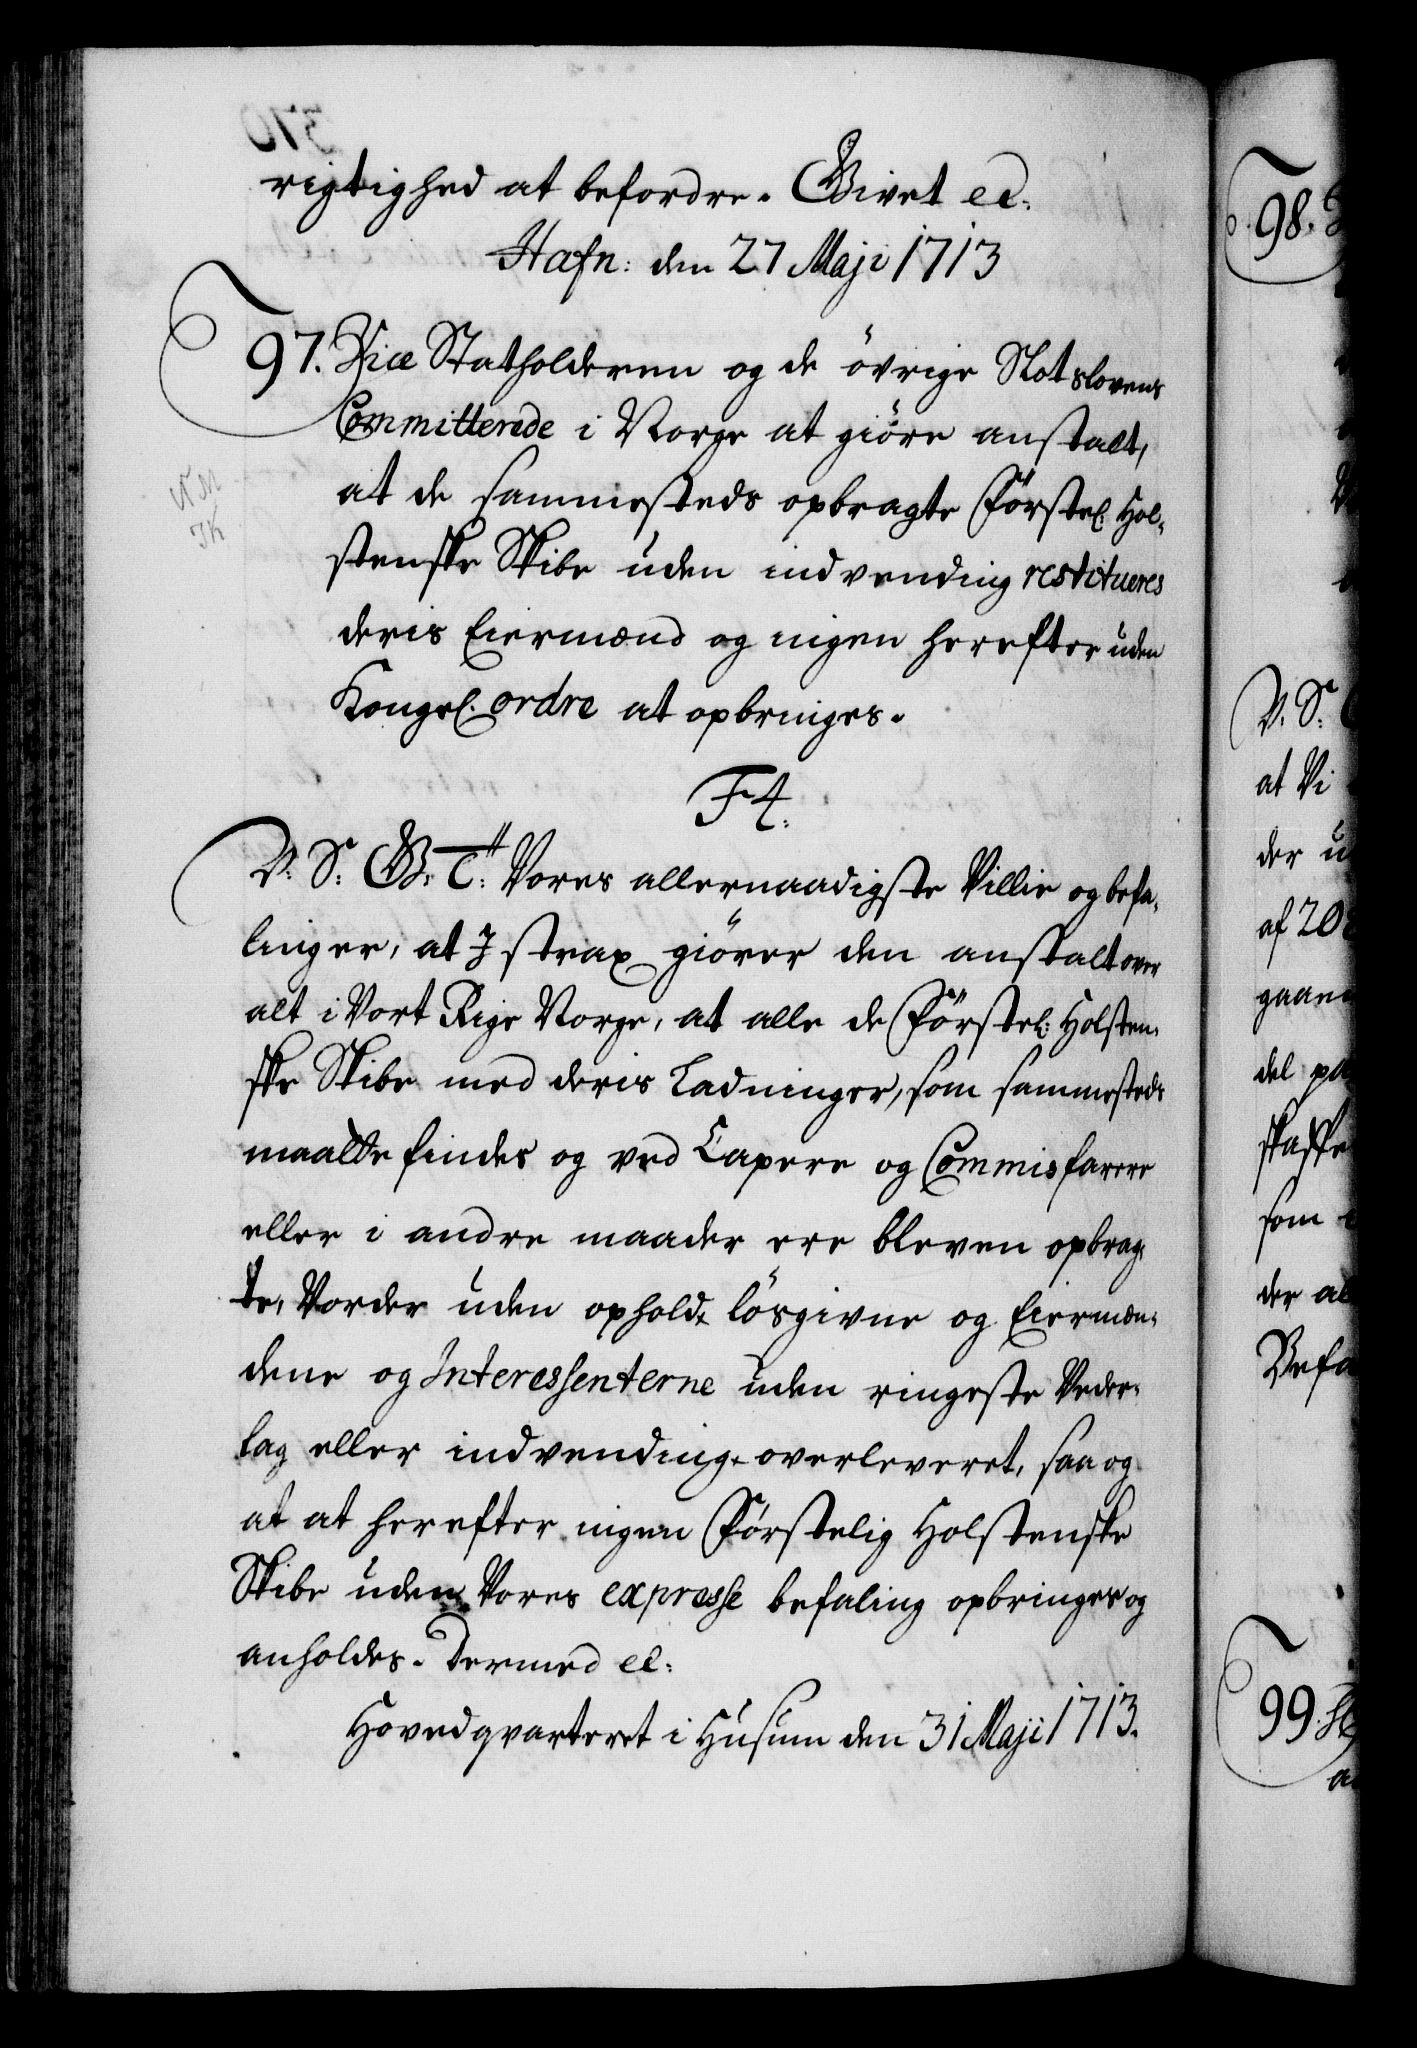 rigtighed at befordre. Givet ec:
Hafn: den 27 Maji 1713
97. Vice Statholderen og de övrige Slotslovens
Committerede i Norge at giöre anstalt,
at de sammesteds opbragte Förstel. Hol-
stenske Skibe uden indvending restitueres
deris Eiermænd og ingen herefter uden
Kongel. ordre at opbringes.
F 4.
V. S: G. T: Vores allernaadigste Villie og befa-
linger, at I strax giörer den anstalt over
alt i Vort Rige Norge, at alle de Förstel: Holsten-
ske Skibe med deris Ladninger, som sammesteds
maatte findes og ved Capere og Commisfarere
eller i andre maader ere bleven opbrag-
te, Vorder uden ophold lösgivne og Eiermæn-
dene og Interessenterne uden ringeste Veder-
lag eller indvending overleveret, saa og
at at herefter ingen Förstelig Holstenske
Skibe uden Vores expresse befaling opbringes og
anholdes. Dermed ec:
Hovedqvarteret i Husum den 31 Maji 1713.
98.
V. S:
at Vi
der u
af 20
gaaen
del pa
skaffe
som
der al
Befa
99.